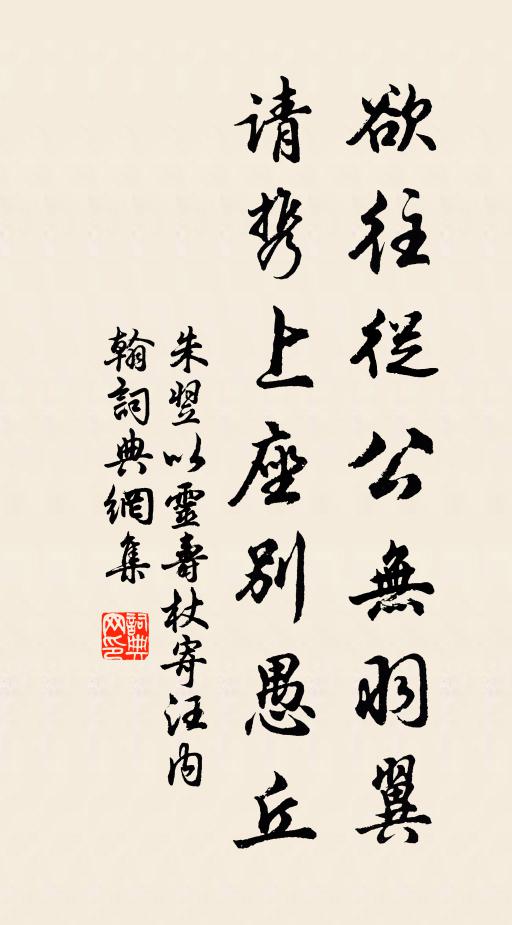 欲往從公無羽翼
请携上座別愚丘
朱翌以靈壽杖寄汪内
翰詞典網集
詞典
网印